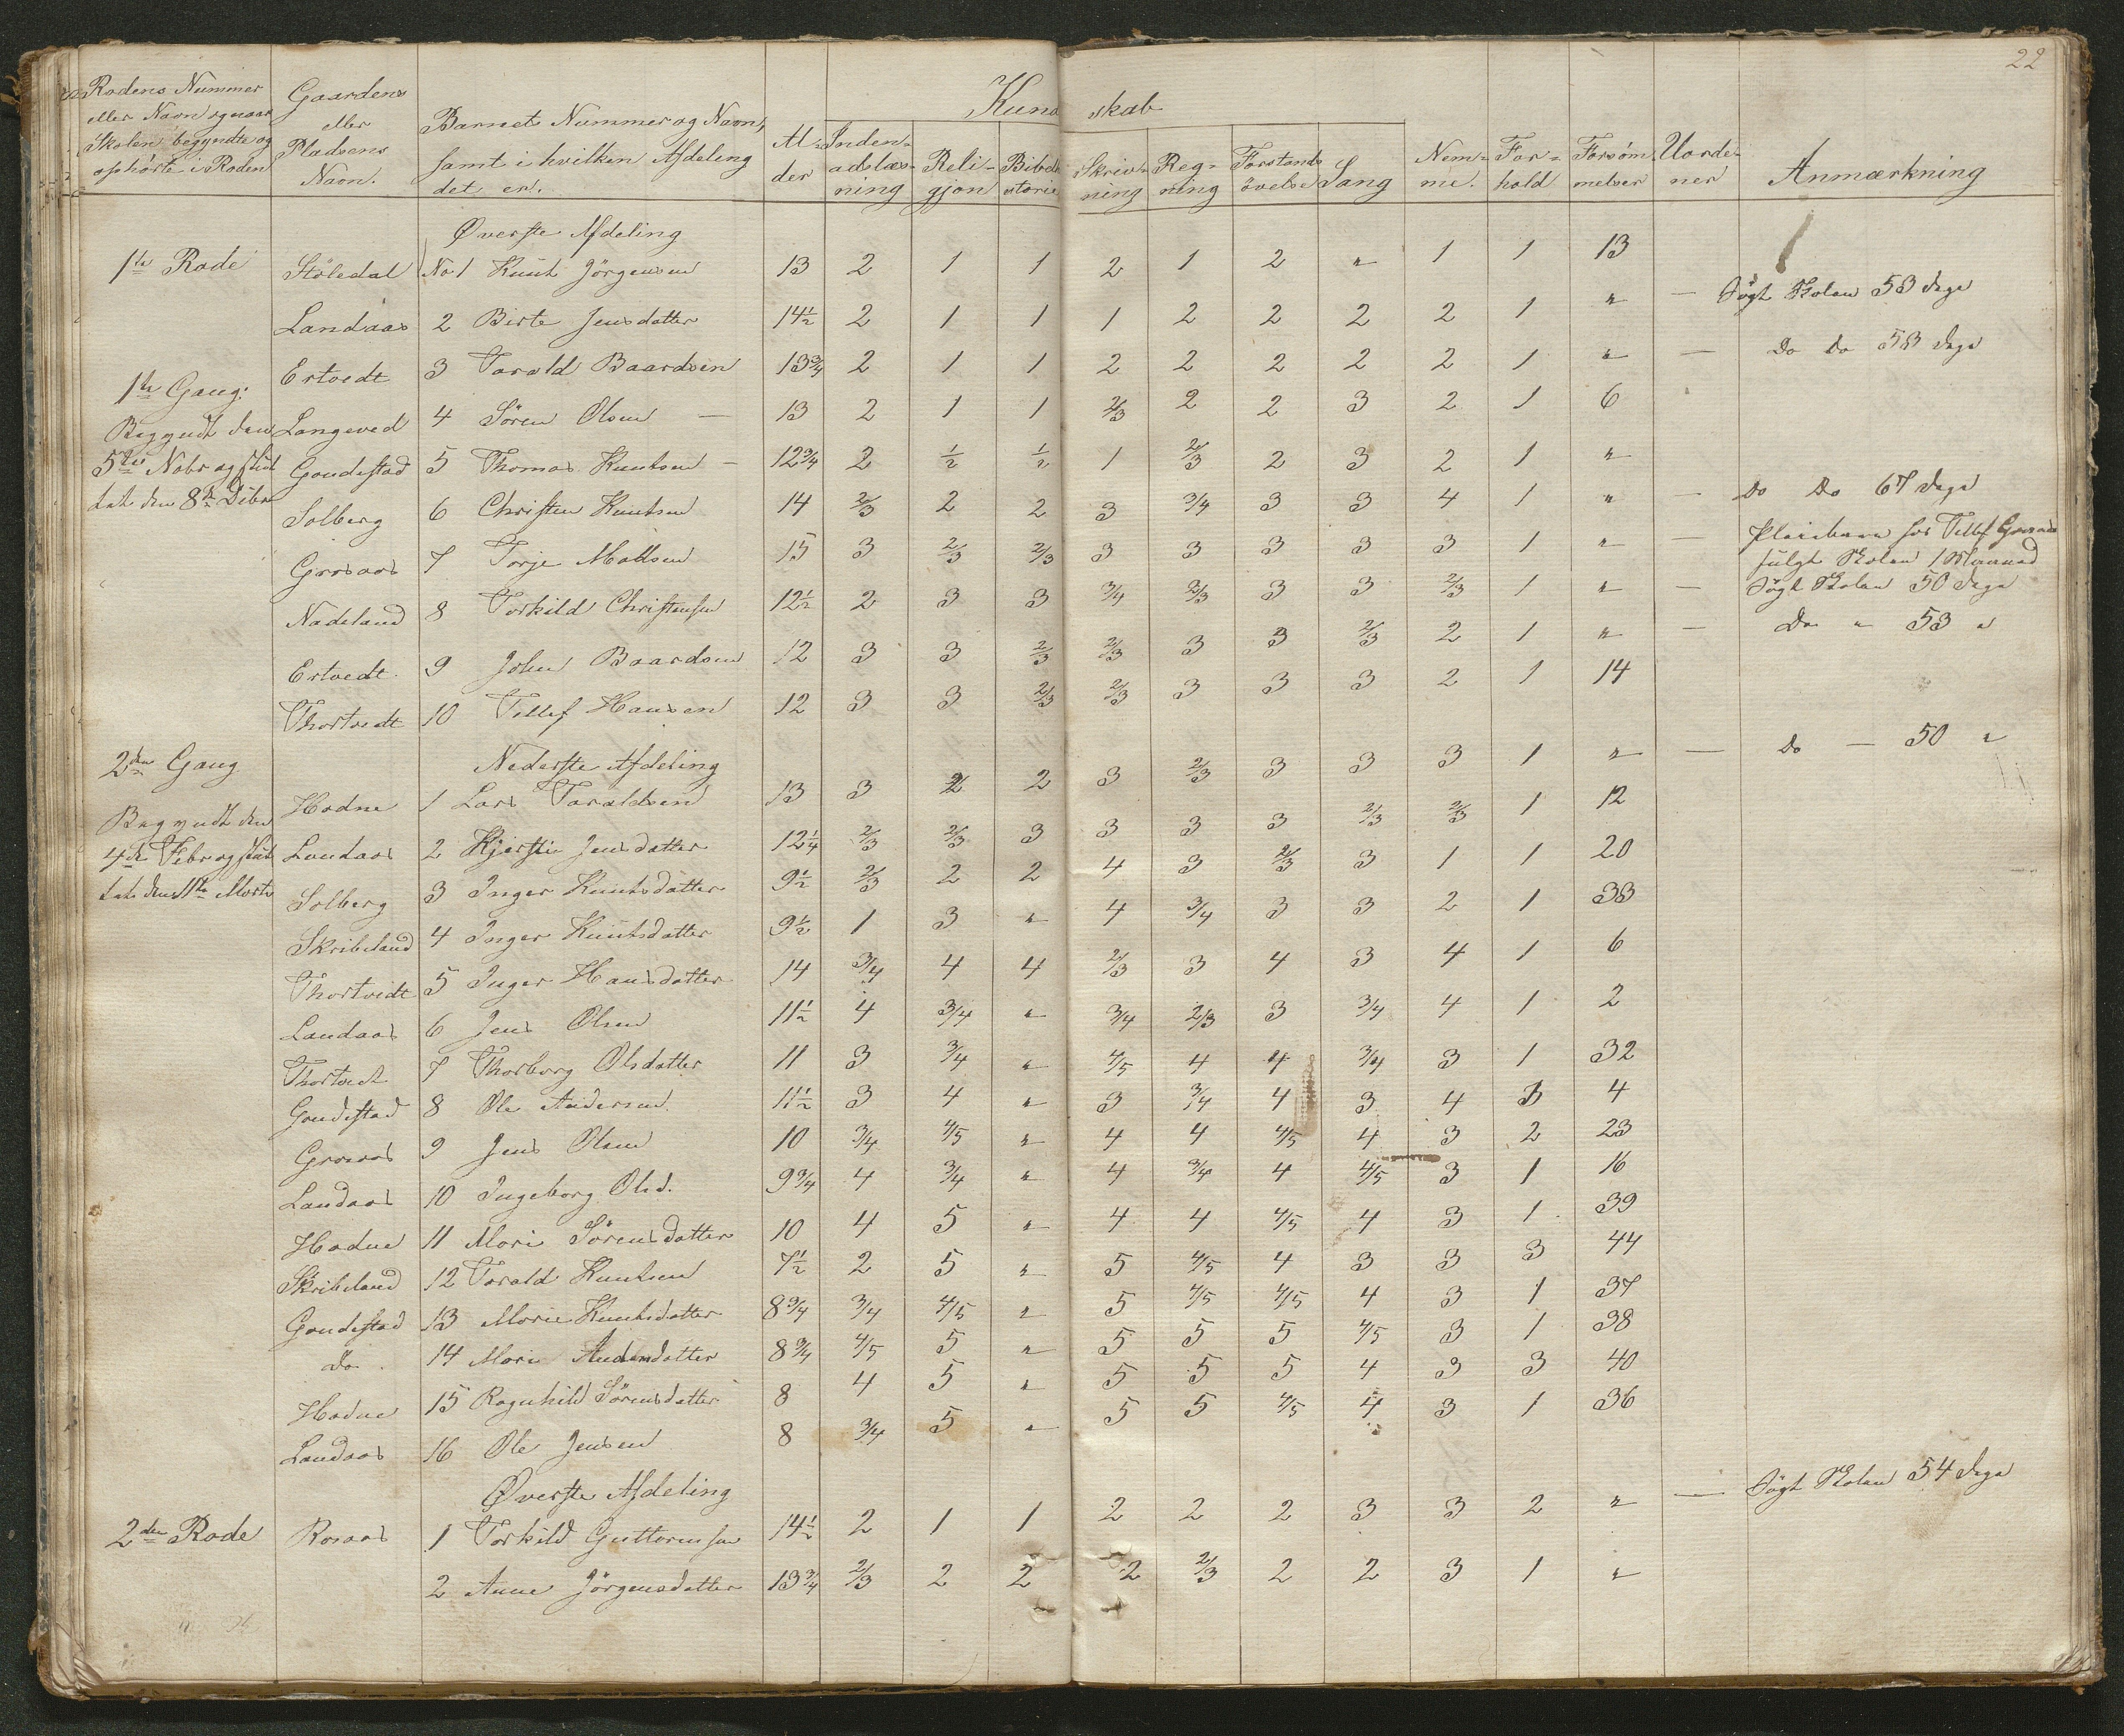 22
Rodens Nummer eller Navn og naar Skolen begyndte og ophørte i Roden
Gaardens eller Pladsens Navn.
Barnets Nummer og Navn, samt i hvilken Afdeling det er.
Al-der
Kundskab
Indenadslæsning
Religjon
Bibelhistorie
Skrivning
Regning
Forstandsøvelse
Sang
Nemme.
Forhold
Forsømmelser
Uordener
Anmærkning
Øverste Afdeling
1ste Rode Stöledal No 1 Knut Jörgensen 13 2 1 1 2 1 2 " 1 1 13
Landaas 2 Birte Jensdatter 14½ 2 1 1 1 2 2 2 2 1 " — Søgt Skolen 53 dage
Ertvedt 3 Tarald Baardsen 13¾ 2 1 1 2 2 2 2 2 1 " — Do Do 53 dage
1ste Gang:
Begyndt den
5te Nobr og slut
tet den 8de Dibr
Langeved 4 Sören Olsen — 13 2 1 1 2/3 2 2 3 2 1 6
Goudestad 5 Thomas Knutsen — 12¾ 2 ½ ½ 1 2/3 2 3 2 1 "
Solberg 6 Christen Knutsen 14 2/3 2 2 3 3/4 3 3 4 1 " — Do Do 67 dage
Grosaas 7 Torje Madsen 15 3 2/3 2/3 3 3 3 3 3 1 " — Pleiebarn hos Tellef Grosaas
fulgt Skolen 1 Maaned
Nadeland 8 Torkild Christensen 12½ 2 3 3 3/4 2/3 3 3 2/3 1 " — Søgt Skolen 50 dage
Ertvedt 9 John Baardsen 12 3 3 2/3 2/3 3 3 2/3 2 1 " — Do " 53 "
Thortvedt 10 Tellef Hansen 12 3 3 2/3 2/3 3 3 3 2 1 14
Nederste Afdeling
2den Gang
Begyndt den
4de Febr og slut
tet den 11te Marts
Hodne 1 Lars Taraldsen 13 3 2 2 3 2/3 3 3 3 1 " — Do — 50 "
Landaas 2 Kjerstie Jensdatter 12¼ 2/3 2/3 3 3 3 3 2/3 2/3 1 12
Solberg 3 Inger Knutsdatter 9½ 2/3 2 2 4 3 2/3 3 1 1 20
Skribeland 4 Inger Knutsdatter 9½ 1 3 " 4 3/4 3 3 2 1 33
Thortvedt 5 Inger Hansdatter 14 3/4 4 4 2/3 3 4 3 4 1 6
Landaas 6 Jens Olsen 11½ 4 3/4 " 3/4 2/3 3 3/4 4 1 2
Thortvedt 7 Thorborg Olsdatter 11 3 3/4 " 4/5 4 4 3/4 3 1 32
Goudestad 8 Ole Andersen 11½ 3 4 " 3 3/4 4 3 4 3 4
Grosaas 9 Jens Olsen 10 3/4 4/5 " 4 4 4/5 4 3 2 23
Landaas 10 Ingeborg Olsd. 9¾ 4 3/4 " 4 3/4 4 4/5 3 1 16
Hodne 11 Mari Sörensdatter 10 4 5 " 4 4 4/5 4 3 1 39
Skribeland 12 Tarald Knutsen 7½ 2 5 " 5 4/5 4 3 3 3 44
Goudestad 13 Marie Knutsdatter 8¾ 3/4 4/5 " 5 4/5 4/5 4 3 1 37
Do 14 Mari Andersdatter 8¾ 4/5 5 " 5 5 5 4/5 3 1 38
Hodne 15 Ragnhild Sörensdatter 8 4 5 " 5 5 5 4 3 3 40
Landaas 16 Ole Jensen 8 3/4 5 " 5 5 4/5 4 3 1 36
Øverste Afdeling
2den Rode Rosaas 1 Torkild Guttormsen 14½ 2 1 1 2 2 2 3 3 2 " — Søgt Skolen 54 dage
2 Anne Jörgensdatter 13¾ 2/3 2 2 2 2/3 2 2 3 1 "